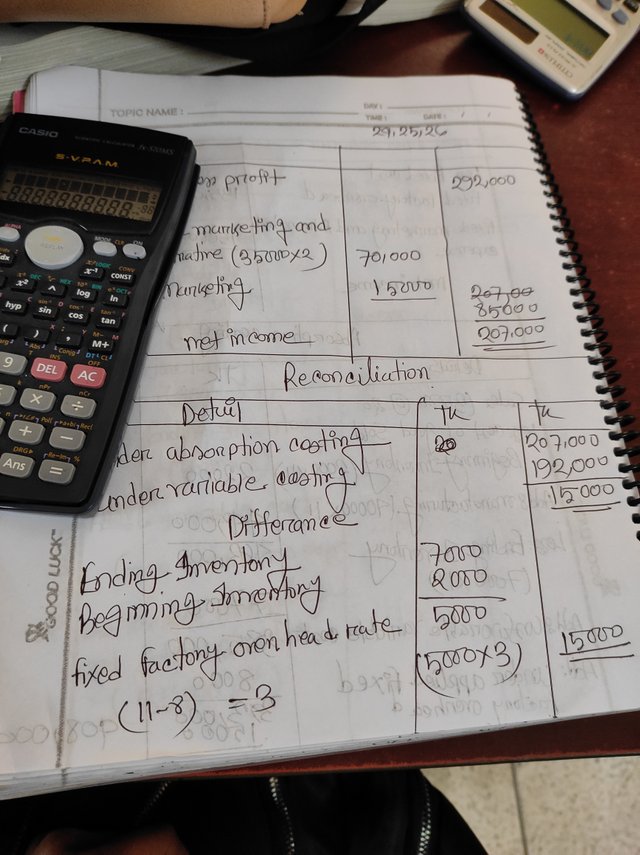 TOPIC NAME :
DAY :
TIME :
DATE : / /
24,25,26
profit 292,000
marketing and
(35000×2) 70,000
marketing 15000 207,00
85000
net income 207,000
Reconciliation
Detail Tk Tk
absorption costing 20 207,000
under variable costing 192,000
Differance 15000
Ending Inventory 7000
Beginning Inventory 2000
5000
fixed factory overhead rate (5000×3) 15000
(11-8) = 3
GOOD LUCK
CASIO
S-V.P.A.M.
CONST
hyp
sin
cos
tan
log
ln
M+
9
DEL
AC
×
÷
+
−
Ans
=